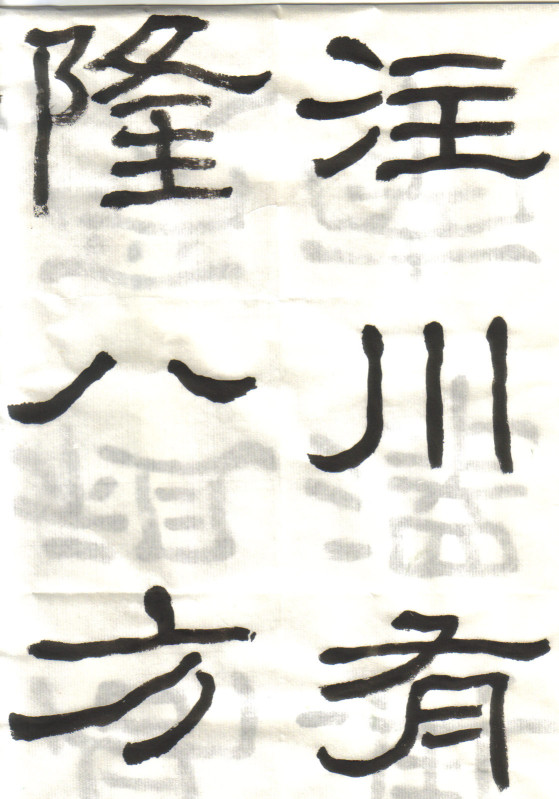 注川有
隆八方